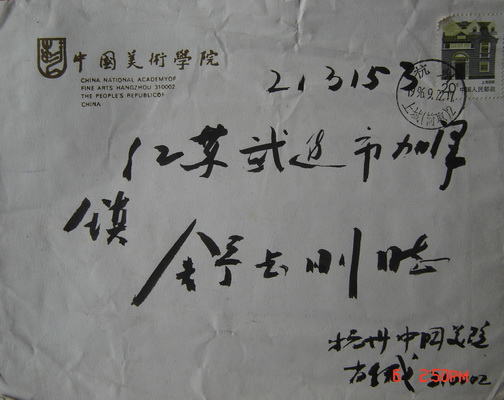 中国美術學院
CHINA NATIONAL ACADEMYOF
FINE ARTS HANGZHOU 310002
THE PEOPLE'S REPUBLICOF
CHINA
213153
杭
1996.9.22
中国人民邮政
江苏武进市
镇
舒 刚
杭州中国美院
310002